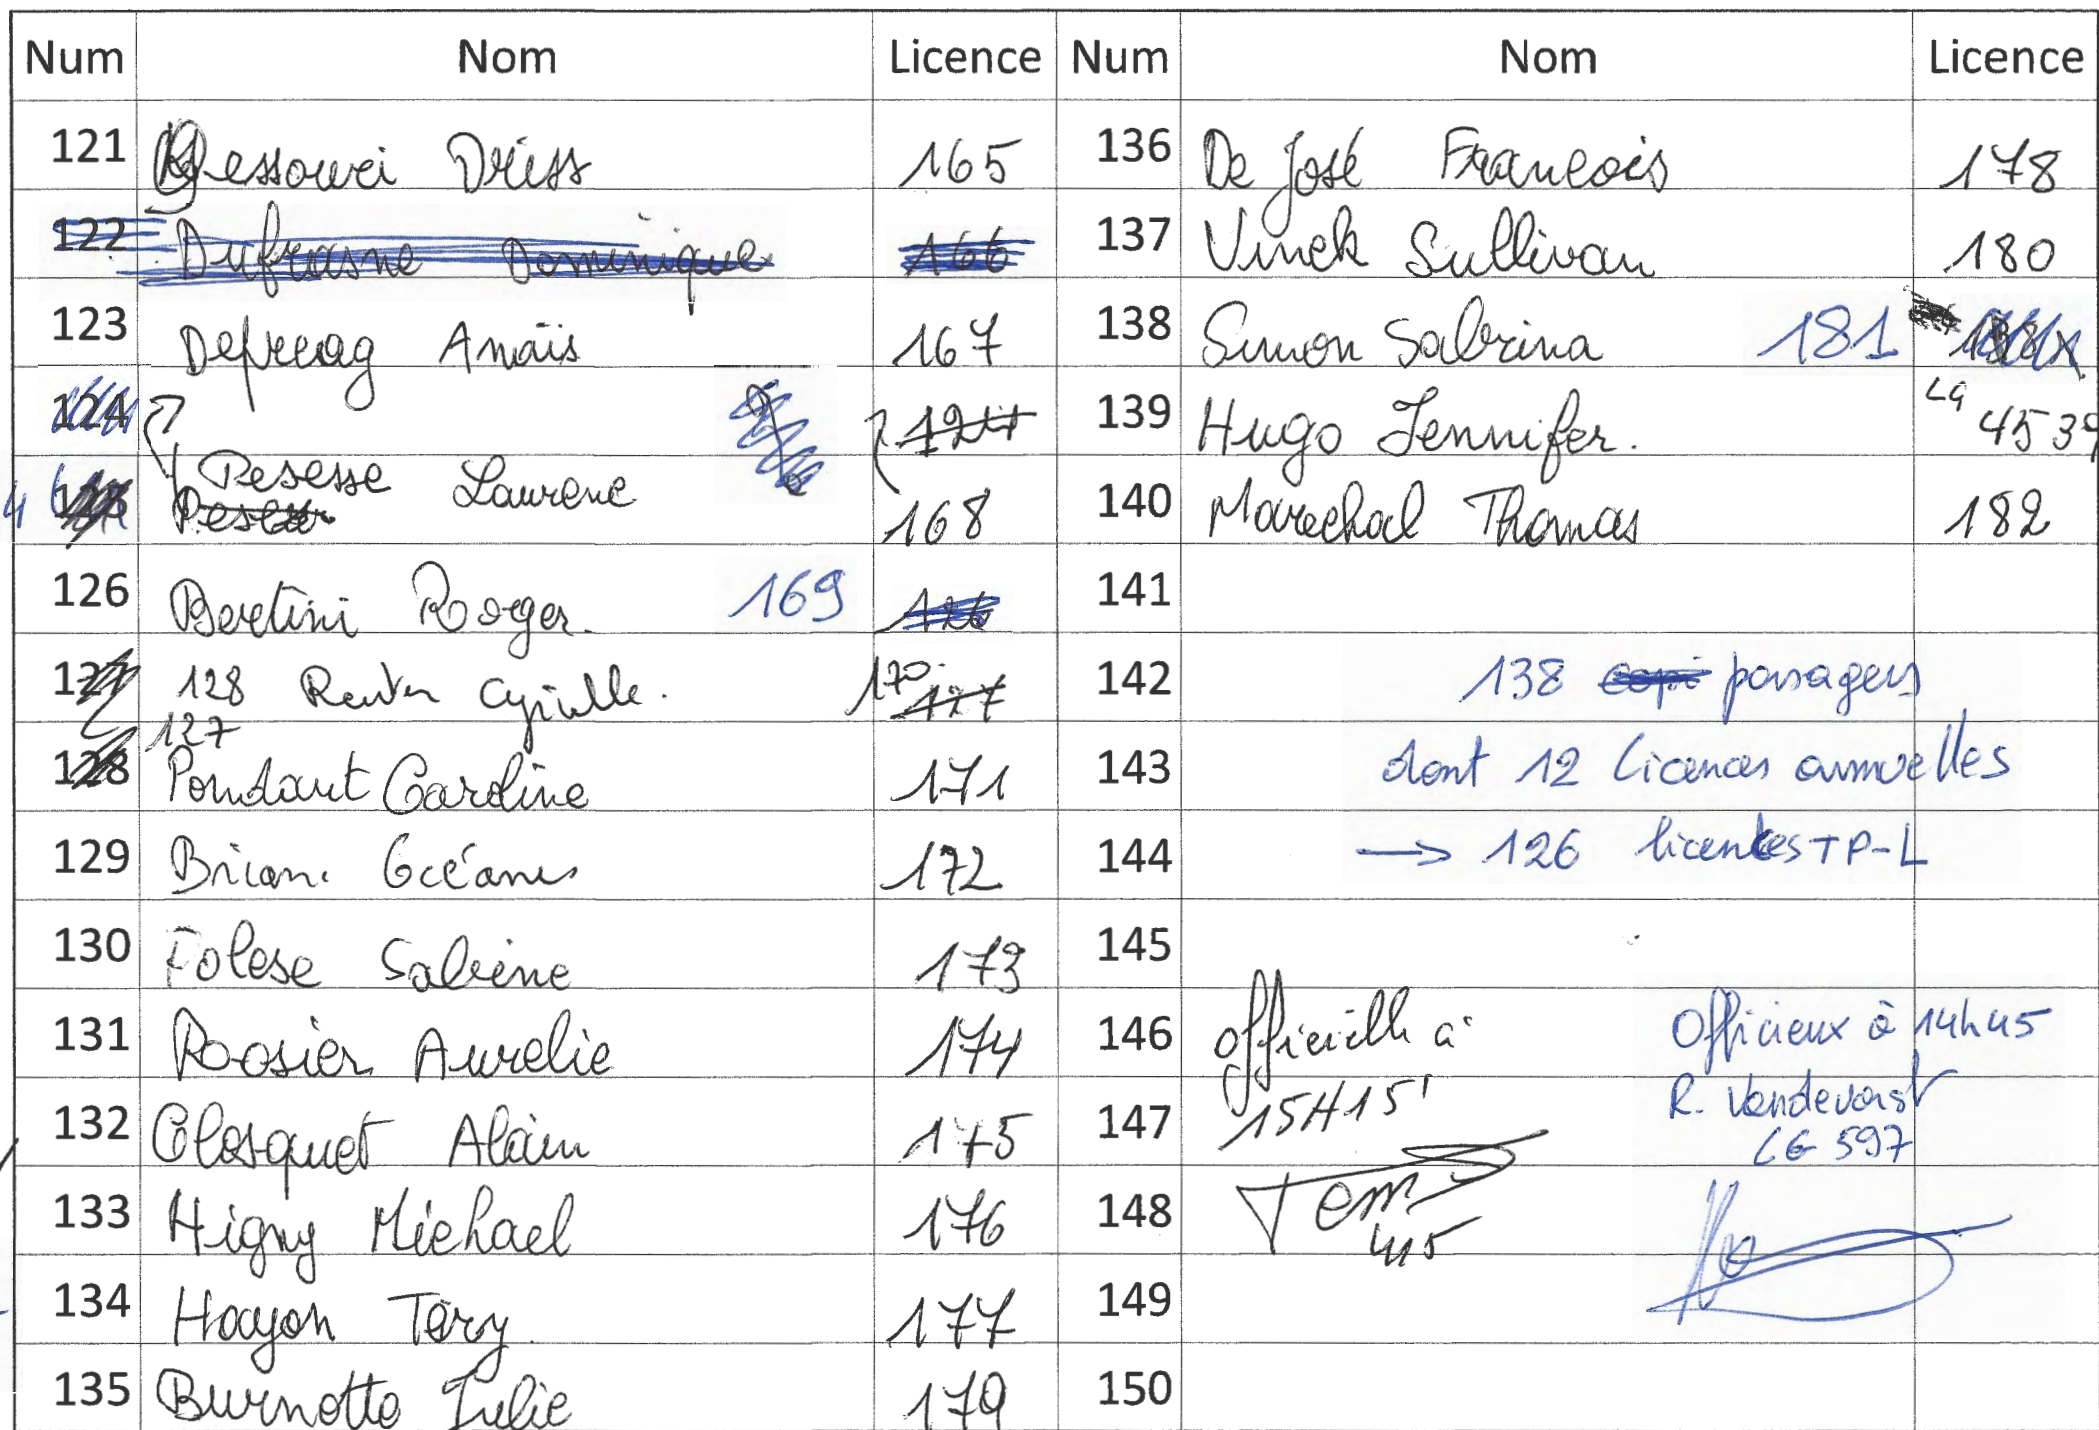 Num Nom Licence Num Nom Licence
121 Gessowei Driss 165 136 De José François 178
122 Dufrasne Dominique 166 137 Vinck Sullivan 180
123 Defrecag Anaïs 167 138 Simon Sabrina 181
124 124 139 Hugo Jennifer. La 4539
4 Pesesse Laurene 168 140 Marechal Thomas 182
126 Bertini Roger. 169 126 141
127 128 Reuter Cyrielle. 170 127 142 138 passagers
128 127 Pondant Caroline 171 143 dont 12 licences annuelles
129 Brian Océanes 172 144 → 126 licences TP-L
130 Folese Sabine 173 145
131 Roosier Aurelie 174 146 Officielle à Officieux à 14h45
132 Closquet Alain 175 147 15H15' R. Vandevorst
LG 597
133 Higny Michael 176 148 415
134 Hoyon Tery. 177 149
135 Burnotte Julie 179 150